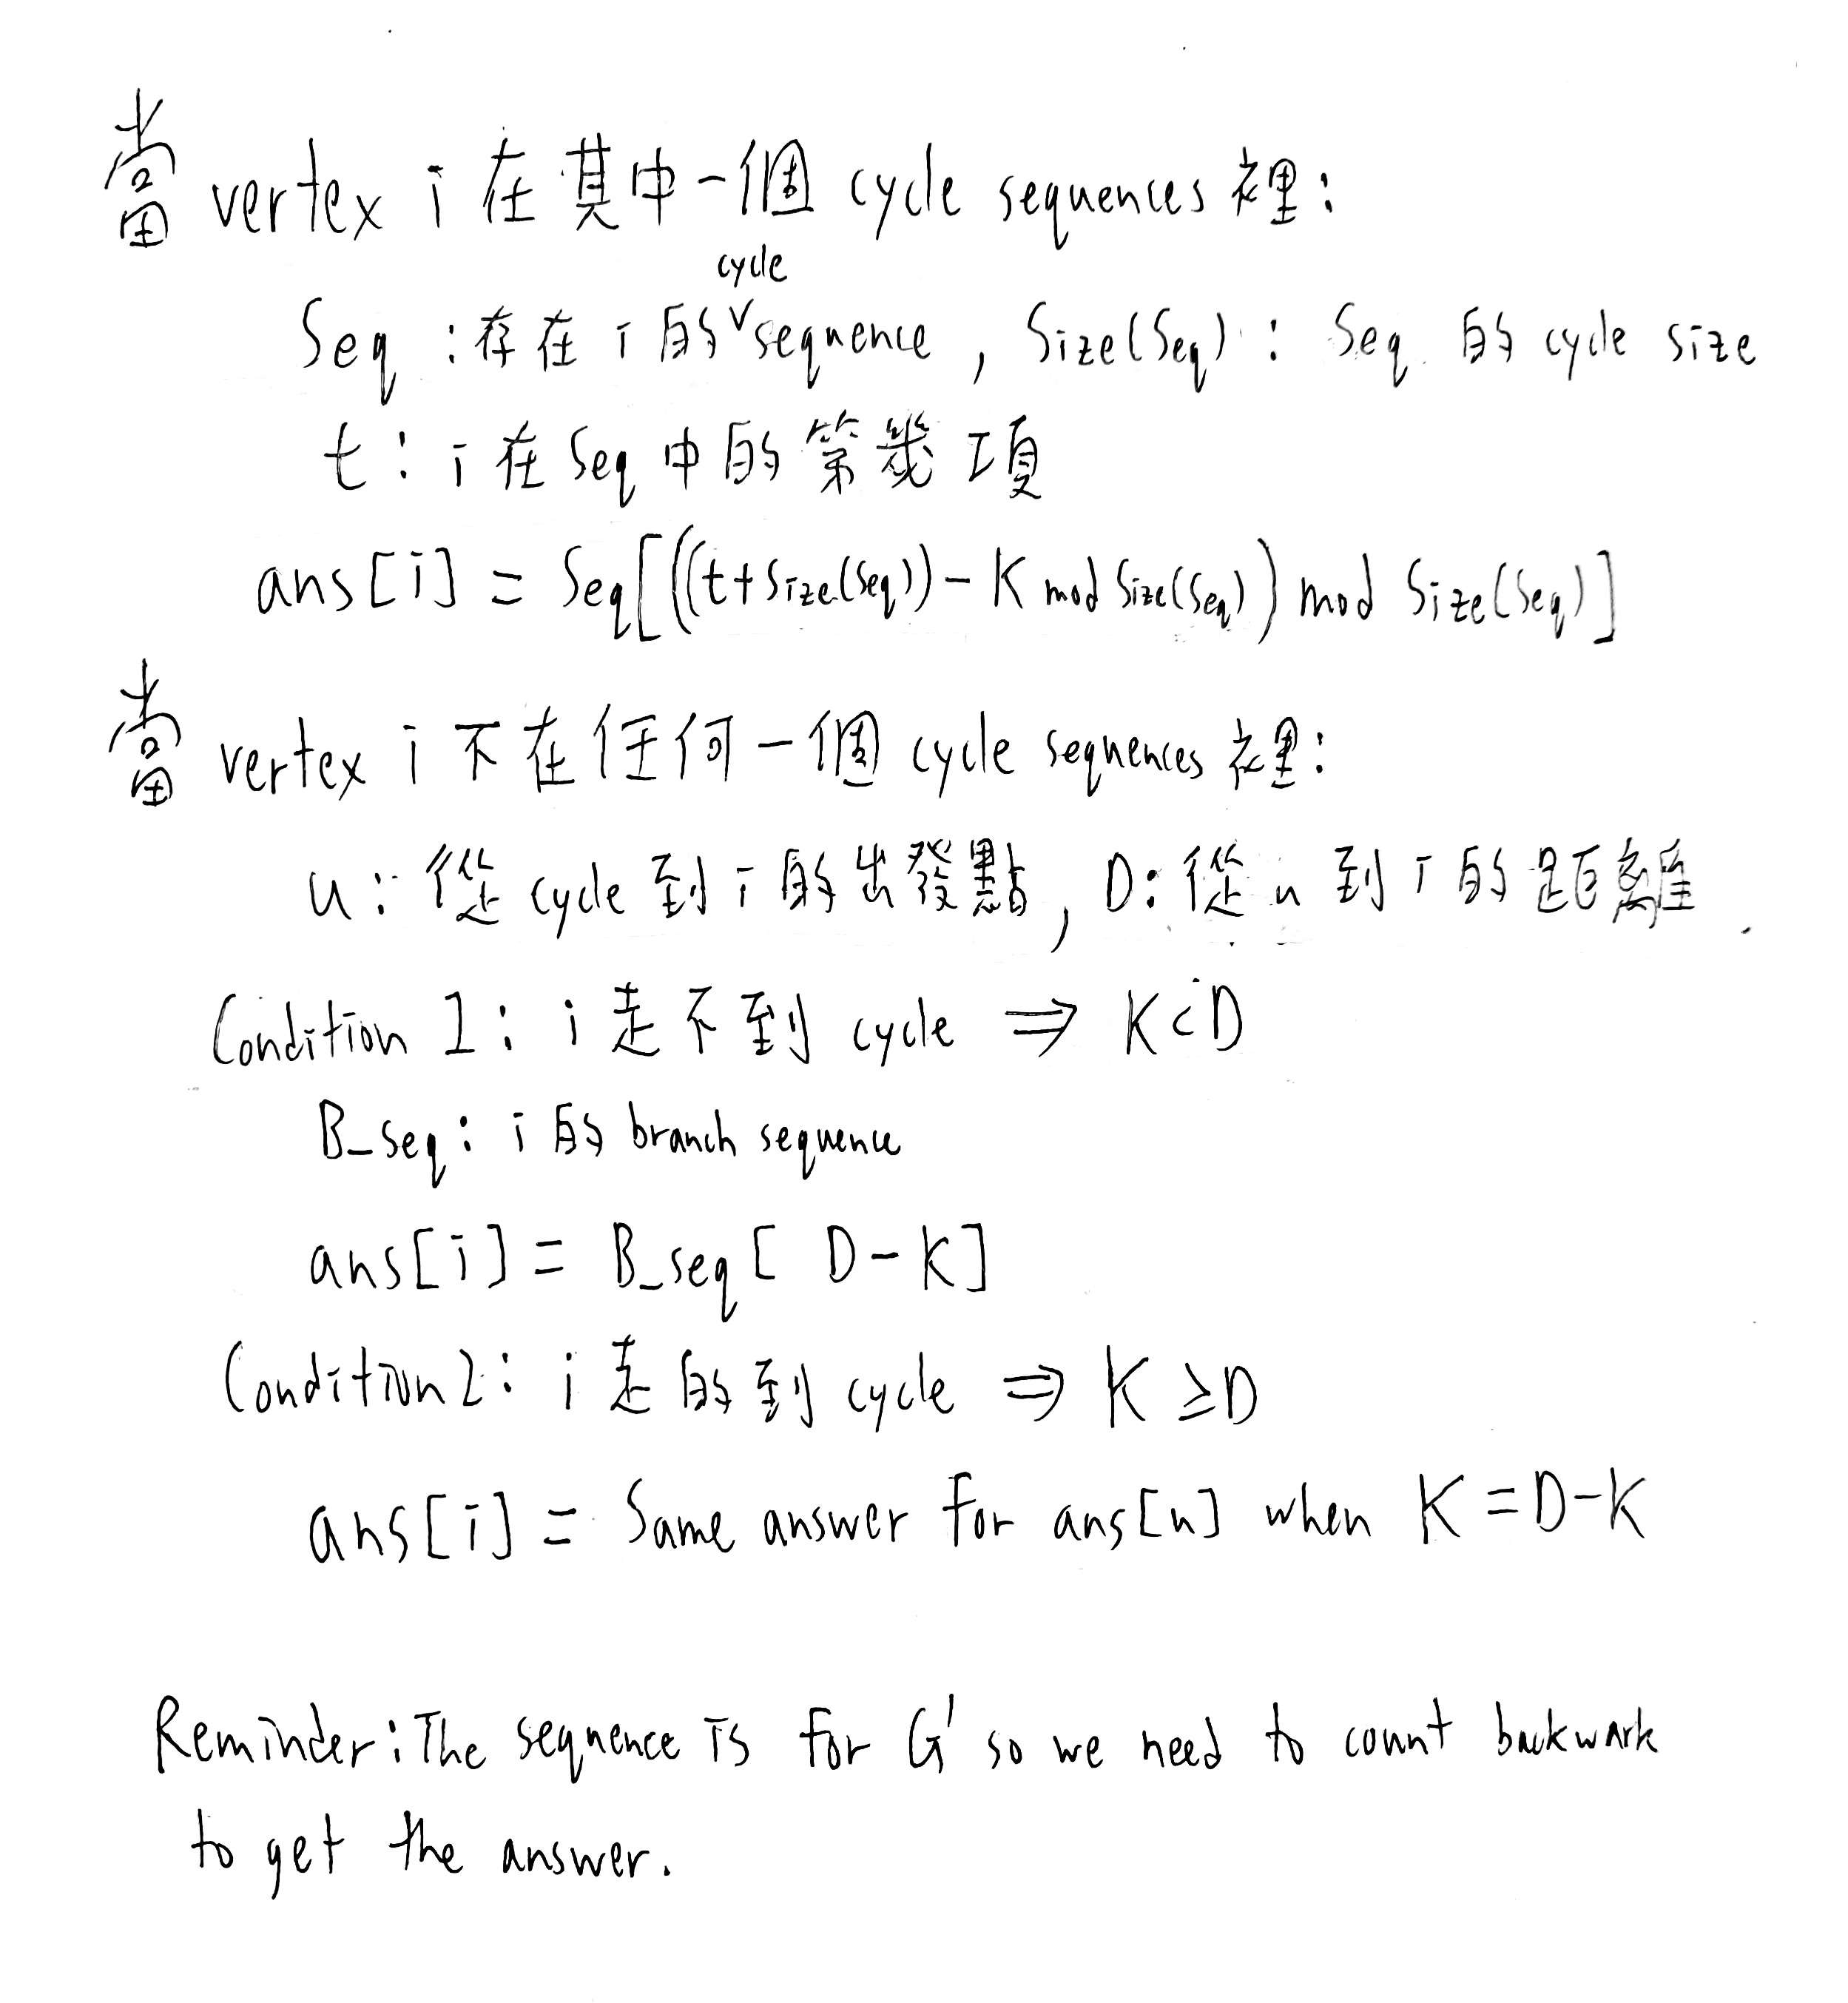 當 vertex i 在其中一個 cycle sequences 裡:
cycle
Seq : 存在 i 的 ∨ sequence , Size(Seq) : Seq 的 cycle size
t : i 在 Seq 中的第幾項
ans[i] = Seq[((t+Size(Seq)) - K mod Size(Seq)) mod Size(Seq)]
當 vertex i 不在任何一個 cycle sequences 裡:
u : 從 cycle 到 i 的出發點, D: 從 u 到 i 的距離
Condition 1: i 走不到 cycle ⇒ K<D
B_seq: i 的 branch sequence
ans[i] = B_seq[ D-K]
Condition 2: i 走的到 cycle ⇒ K ≥D
ans[i] = Same answer for ans[u] when K=D-K
Reminder: The sequence is for G' so we need to count backwark
to get the answer.